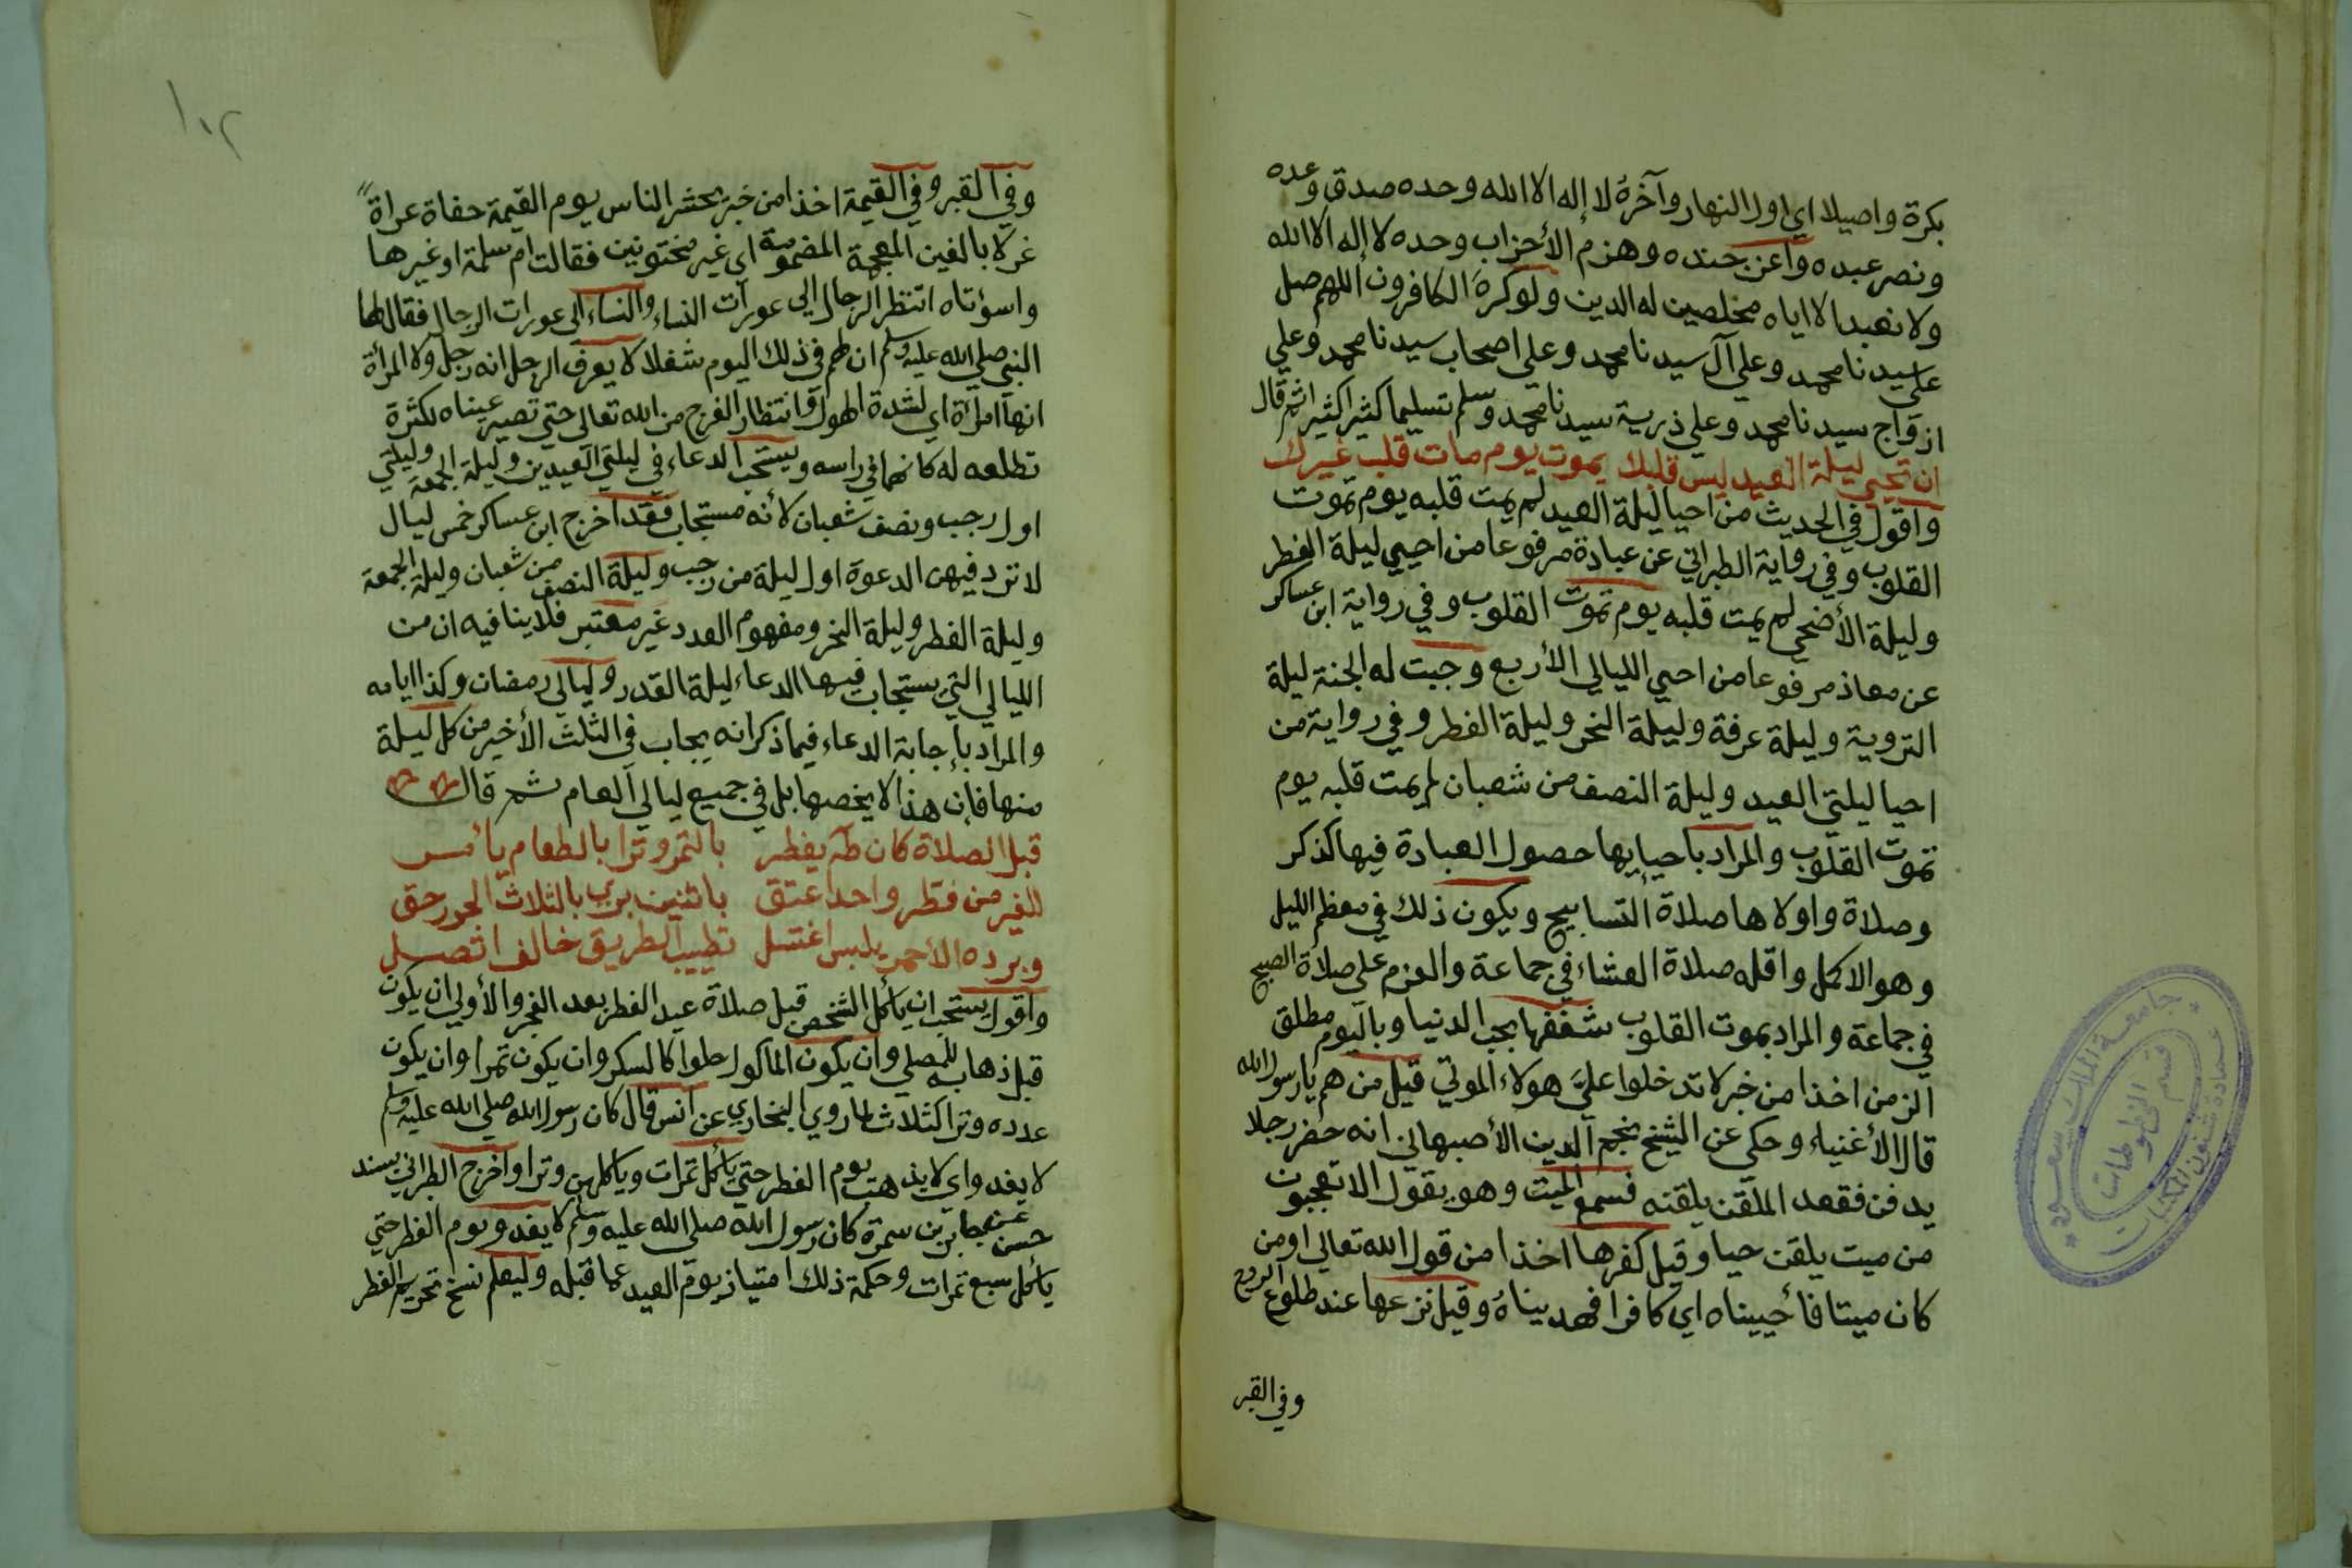 بكرة واصيلا اي اول النهار وآخره لا إله الا الله وحده صدق وعده
ونصر عبده واعز جنده وهزم الأحزاب وحده لا إله الا الله
ولا نعبد الا اياه مخلصين له الدين ولوكره الكافرون اللهم صل
على سيدنا محمد وعلي آل سيدنا محمد وعلى اصحاب سيدنا محمد وعلي
ازواج سيدنا محمد وعلي ذرية سيدنا محمد وسلم تسليما كثيرا كثيرا ثم قال
ان تحيي ليلة العيد ليس قلبك يموت يوم مات قلب غيرك
واقول في الحديث من احيا ليلة العيد لم يمت قلبه يوم تموت
القلوب وفي رواية الطبراني عن عبادة مرفوعا من احيي ليلة الفطر
وليلة الأضحي لم يمت قلبه يوم تموت القلوب وفي رواية ابن عساكر
عن معاذ مرفوعا من احيي الليالي الأربع وجبت له الجنة ليلة
التروية وليلة عرفة وليلة النحر وليلة الفطر وفي رواية من
احيا ليلتي العيد وليلة النصف من شعبان لم يمت قلبه يوم
تموت القلوب والمراد باحيايها حصول العبادة فيها كذكر
وصلاة واولاها صلاة التسابيح ويكون ذلك في معظم الليل
وهو الاكمل واقله صلاة العشاء في جماعة والعزم على صلاة الصبح
في جماعة والمراد بموت القلوب شغفها بحب الدنيا وباليوم مطلق
الزمن اخذا من خبر لا تدخلوا علي هولاء الموتي قيل من هم يا رسول الله
قال الأغنياء وحكي عن الشيخ نجم الدين الأصبهاني انه حضر رجلا
يدفن فقعد الملقن يلقنه فسمع الميت وهو يقول الا تعجبون
من ميت يلقن حيا وقيل كفرها اخذا من قول الله تعالى اومن
كان ميتا فأحييناه اي كافرا فهديناه وقيل نزعها عند طلوع الروح
وفي القبر
١٠٢
وفي القبر وفي القيمة اخذا من خبر يحشر الناس يوم القيمة حفاة عراة
غرلا بالغين المعجمة المضمومة اي غير مختونين فقالت ام سلمة او غيرها
واسؤتاه اتنظر الرجال الي عورات النساء والنساء الى عورات الرجال فقال لها
النبي صلي الله عليه وسلم ان لهم في ذلك اليوم شغلا لا يعرف الرجل انه رجل ولا المرأة
انها امرأة اي لشدة الهول وانتظار الفرج من الله تعالى حتي تصير عيناه لكثرة
تطلعه له كانهما في راسه ويستحب الدعاء في ليلتي العيدين وليلة الجمعة وليلتي
اول رجب ونصف شعبان لأنه مستجاب فقد اخرج ابن عساكر خمس ليال
لا ترد فيهن الدعوة اول ليلة من رجب وليلة النصف من شعبان وليلة الجمعة
وليلة الفطر وليلة النحر ومفهوم العدد غير معتبر فلا ينافيه ان من
الليالي التي يستجاب فيها الدعاء ليلة القدر وليالي رمضان وكذا ايامه
والمراد بإجابة الدعاء فيما ذكر انه يجاب في الثلث الأخير من كل ليلة
منها فإن هذا لا يخصها بل في جميع ليالي العام ثم قال
قبل الصلاة كان طه يفطر بالتمر وترا بالطعام يأمر
للغير من فطر واحدا عتق باثنين بري بالثلاث الحور حق
وبرده الأحمر يلبس اغتسل تطيب الطريق خالف اتصل
واقول يستحب ان يأكل الشخص قبل صلاة عيد الفطر بعد الفجر والأولي ان يكون
قبل ذهابه للمصلي وان يكون المأكول حلوا كالسكر وان يكون تمرا وان يكون
عدده وترا كثلاث لما روي البخاري عن انس قال كان رسول الله صلي الله عليه وسلم
لا يغدو اي لا يذهب يوم الفطر حتي يأكل تمرات ويأكلهن وترا واخرج الطبراني بسند
حسن عن جابر بن سمرة كان رسول الله صلى الله عليه وسلم لا يغدو يوم الفطر حتي
يأكل سبع تمرات وحكمة ذلك امتياز يوم العيد عما قبله وليعلم نسخ تحريم الفطر
جامعة الملك سعود
عمادة شئون المكتبات
قسم المخطوطات